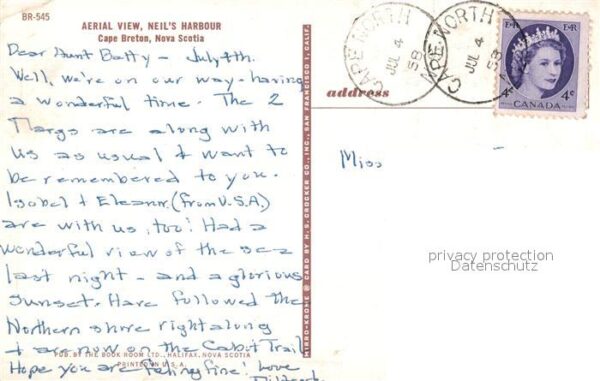 BR-545
AERIAL VIEW, NEIL'S HARBOUR
Cape Breton, Nova Scotia
Dear Aunt Betty - July 4th.
Well, we're on our way - having
a wonderful time. The 2
Margs are along with
us as usual & want to
be remembered to you.
Isobel & Eleanr. (from U.S.A)
are with us, too! Had a
wonderful view of the sea
last night - and a glorious
sunset. Have followed the
Northern shore right along
& are now on the Cabot Trail
PUB. BY THE BOOK ROOM LTD., HALIFAX, NOVA SCOTIA
PRINTED IN U.S.A.
Hope you are feeling fine! Love
MIRRO-KROME ® CARD BY H. S. CROCKER CO., INC., SAN FRANCISCO 1, CALIF.
CAPE NORTH
JUL 4
58
CAPE NORTH
JUL 4
58
E II R E II R
4¢ CANADA 4¢
address
Miss
privacy protection
Datenschutz